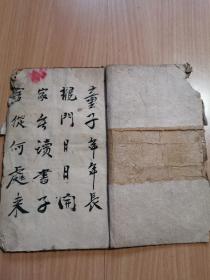 童子年年長
龍門日日開
家無讀書子
官從何處來